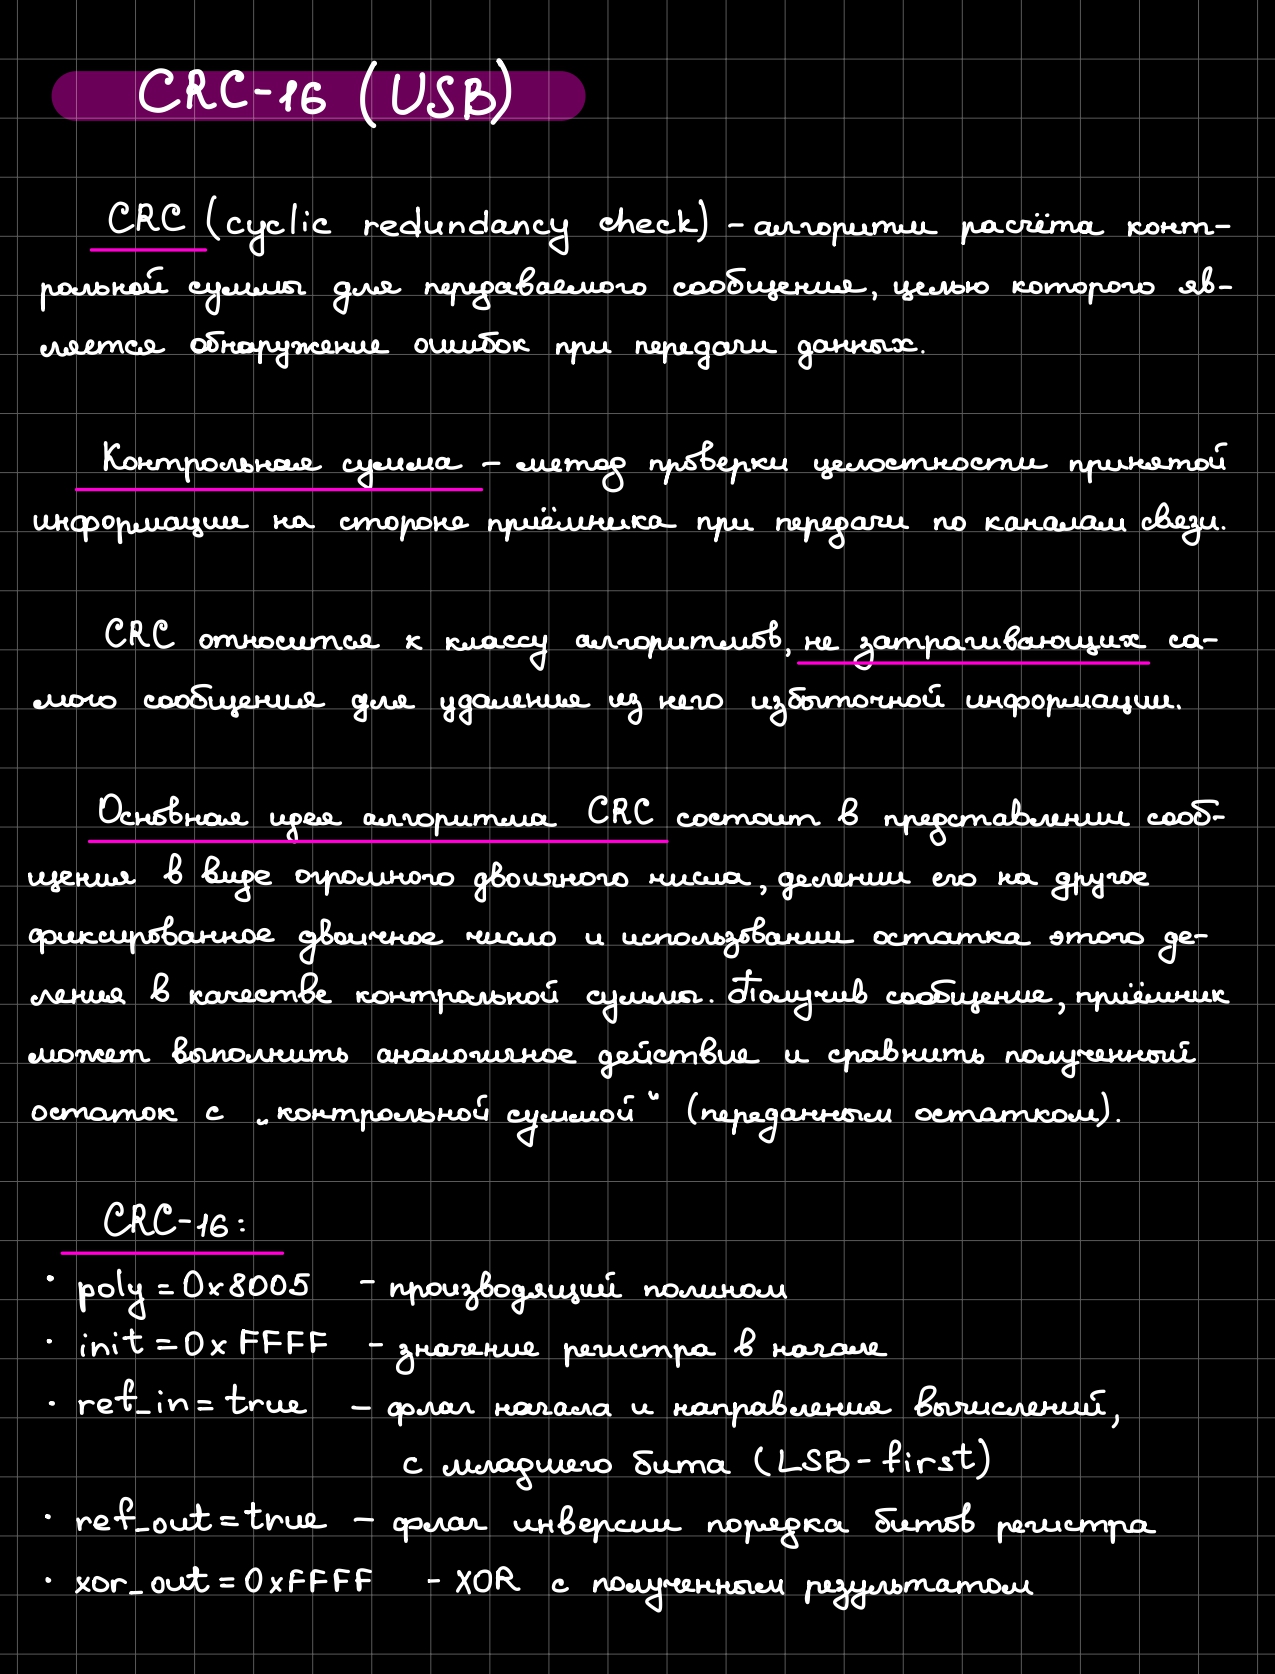 CRC-16 (USB)
CRC (cyclic redundancy check) - алгоритм расчёта конт-
рольной суммы для передаваемого сообщения, целью которого яв-
ляется обнаружение ошибок при передачи данных.
Контрольная сумма - метод проверки целостности принятой
информации на стороне приёмника при передачи по каналам связи.
CRC относится к классу алгоритмов, не затрагивающих са-
мого сообщения для удаления из него избыточной информации.
Основная идея алгоритма CRC состоит в представлении сооб-
щения в виде огромного двоичного числа, делении его на другое
фиксированное двоичное число и использовании остатка этого де-
ления в качестве контрольной суммы. Получив сообщение, приёмник
может выполнить аналогичное действие и сравнить полученный
остаток с „контрольной суммой“ (переданным остатком).
CRC-16:
· poly = 0x8005 - производящий полином
· init = 0xFFFF - значение регистра в начале
· ref_in = true - флаг начала и направления вычислений,
с младшего бита (LSB-first)
· ref_out = true - флаг инверсии порядка битов регистра
· xor_out = 0xFFFF - XOR с полученным результатом